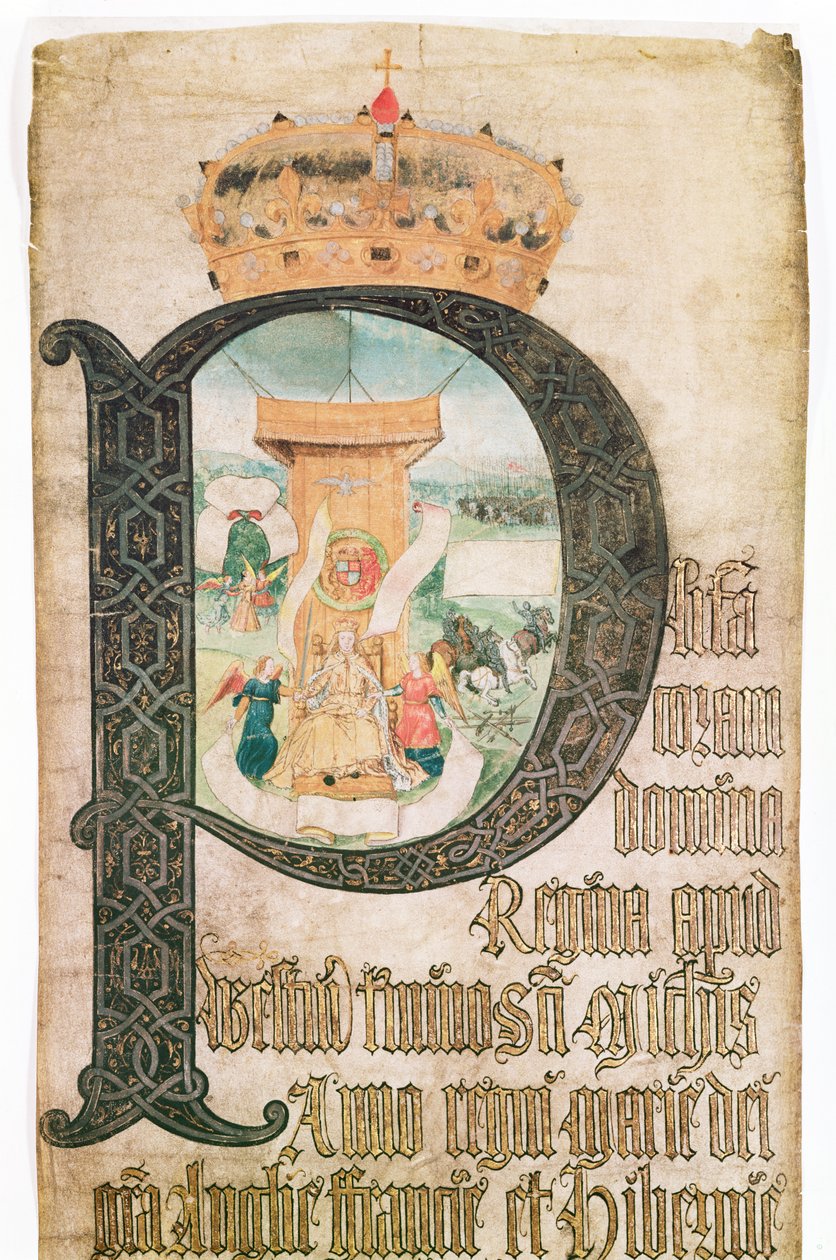 Plita
coram
domina
Regina apud
Westm̄ termino Sc̄i Mich̄is
Anno regni Marie dei
gr̄a Anglie ffrancie et Hibernie